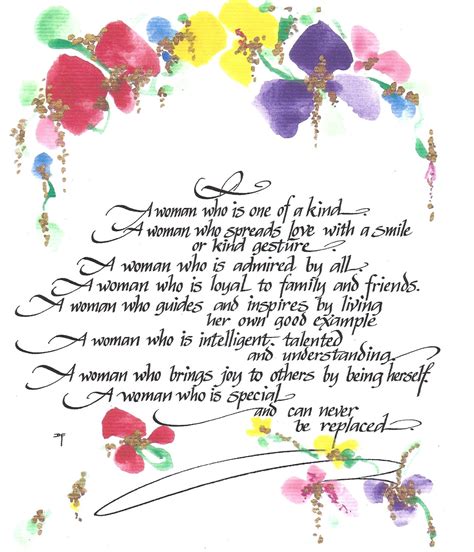 A woman who is one of a kind.
A woman who spreads love with a smile
or kind gesture.
A woman who is admired by all.
A woman who is loyal to family and friends.
A woman who guides and inspires by living
her own good example
A woman who is intelligent, talented
and understanding.
A woman who brings joy to others by being herself.
A woman who is special
and can never
be replaced